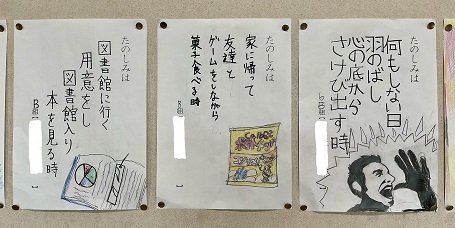 たのしみは
図書館に行く
用意をし
図書館入り
本を見る時
B組【
】
たのしみは
家に帰って
友達と
ゲームをしながら
菓子食べる時
B組【
】
たのしみは
何もしない日
羽のばし
心の底から
さけび出す時
B組【
】